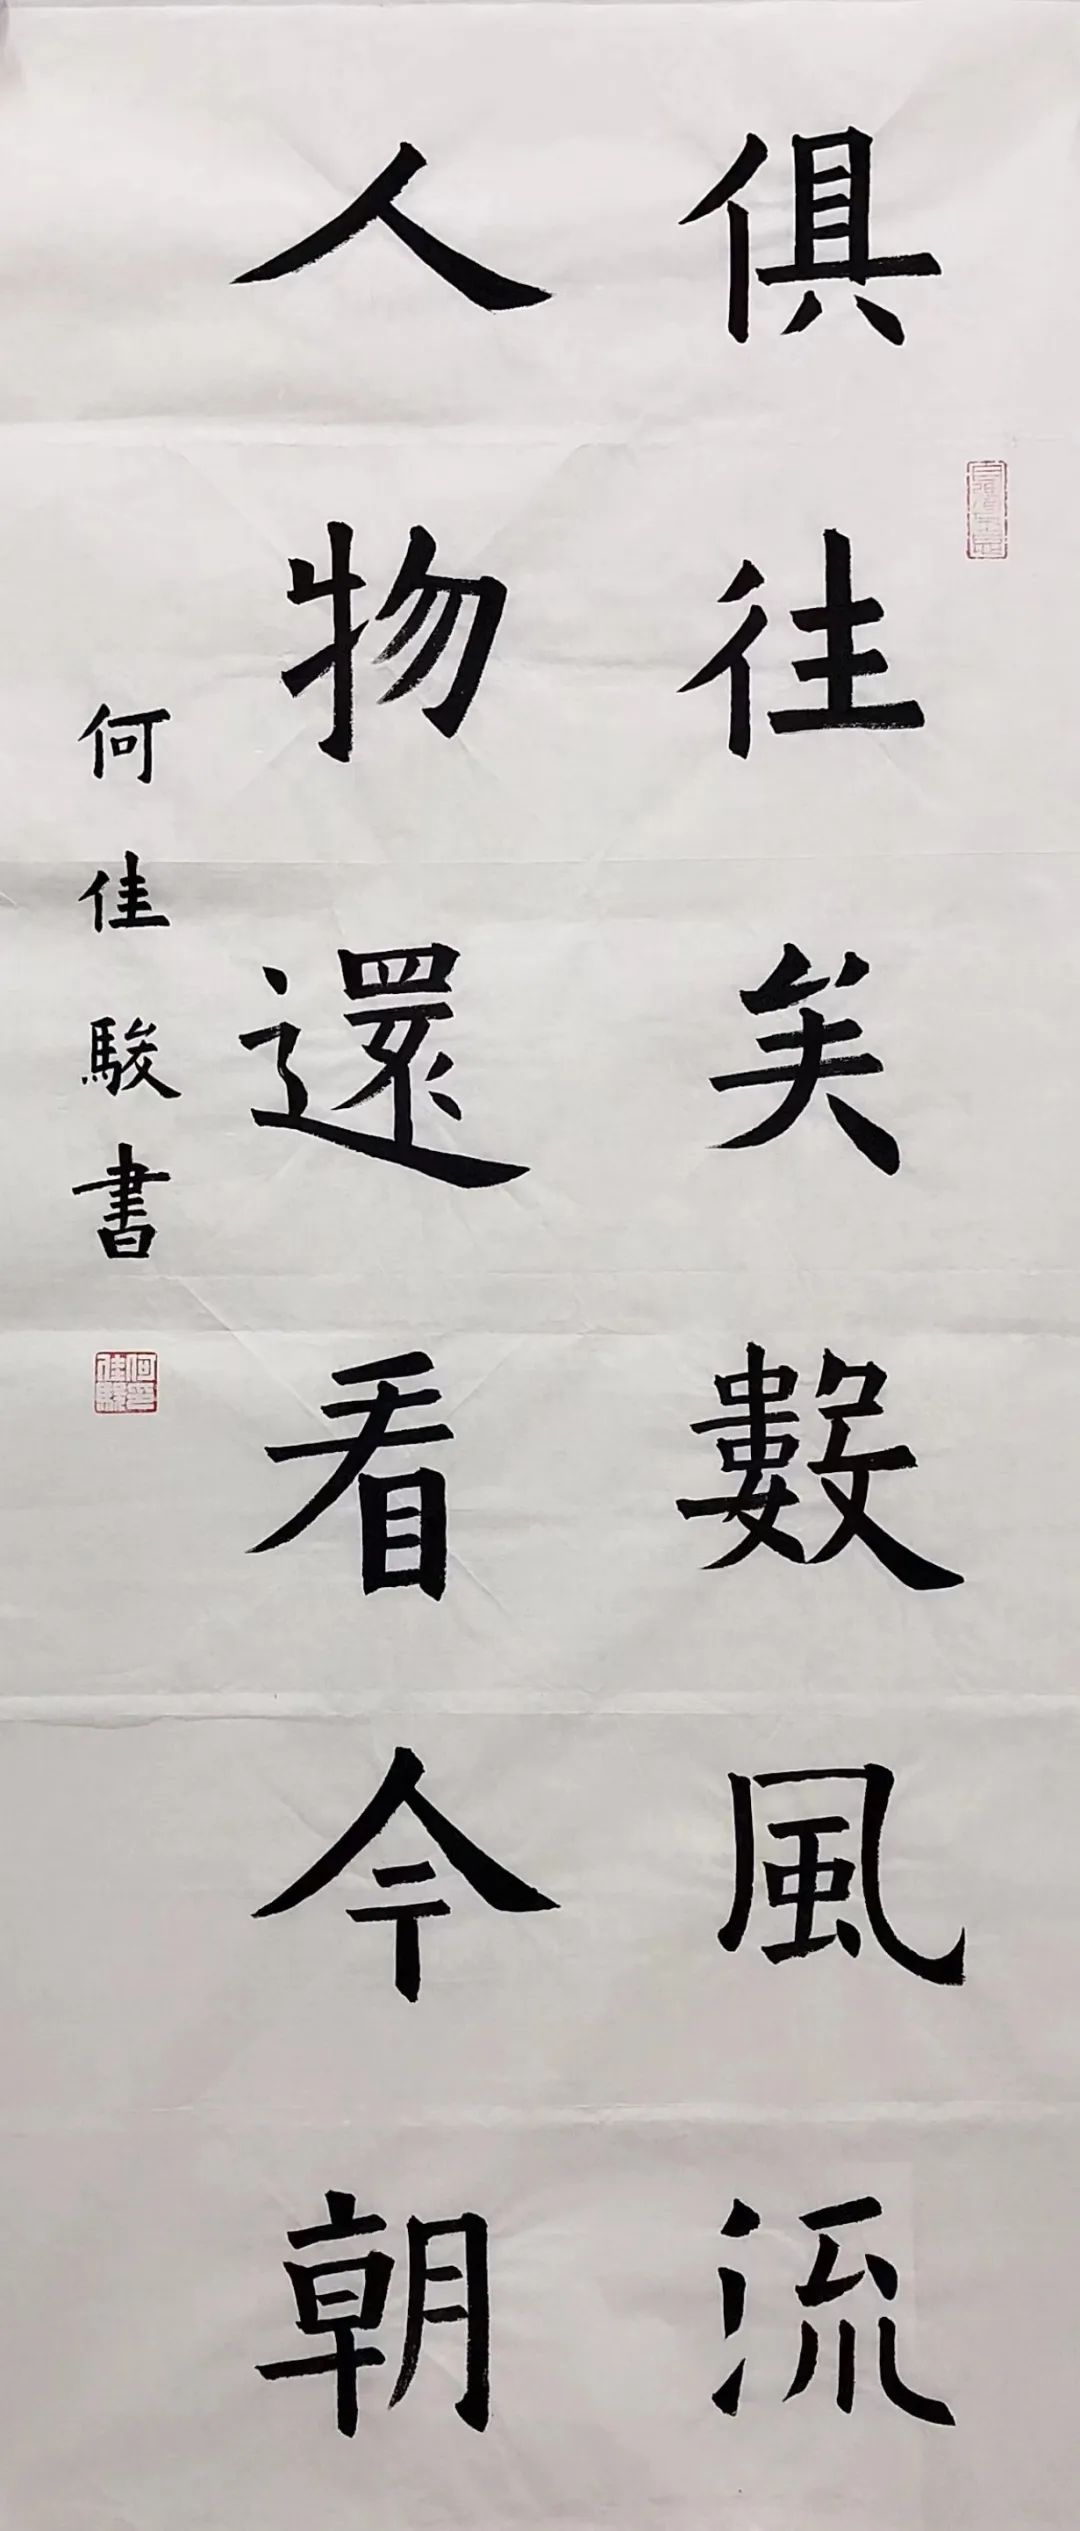 俱往矣數風流
人物還看今朝
何佳駿書